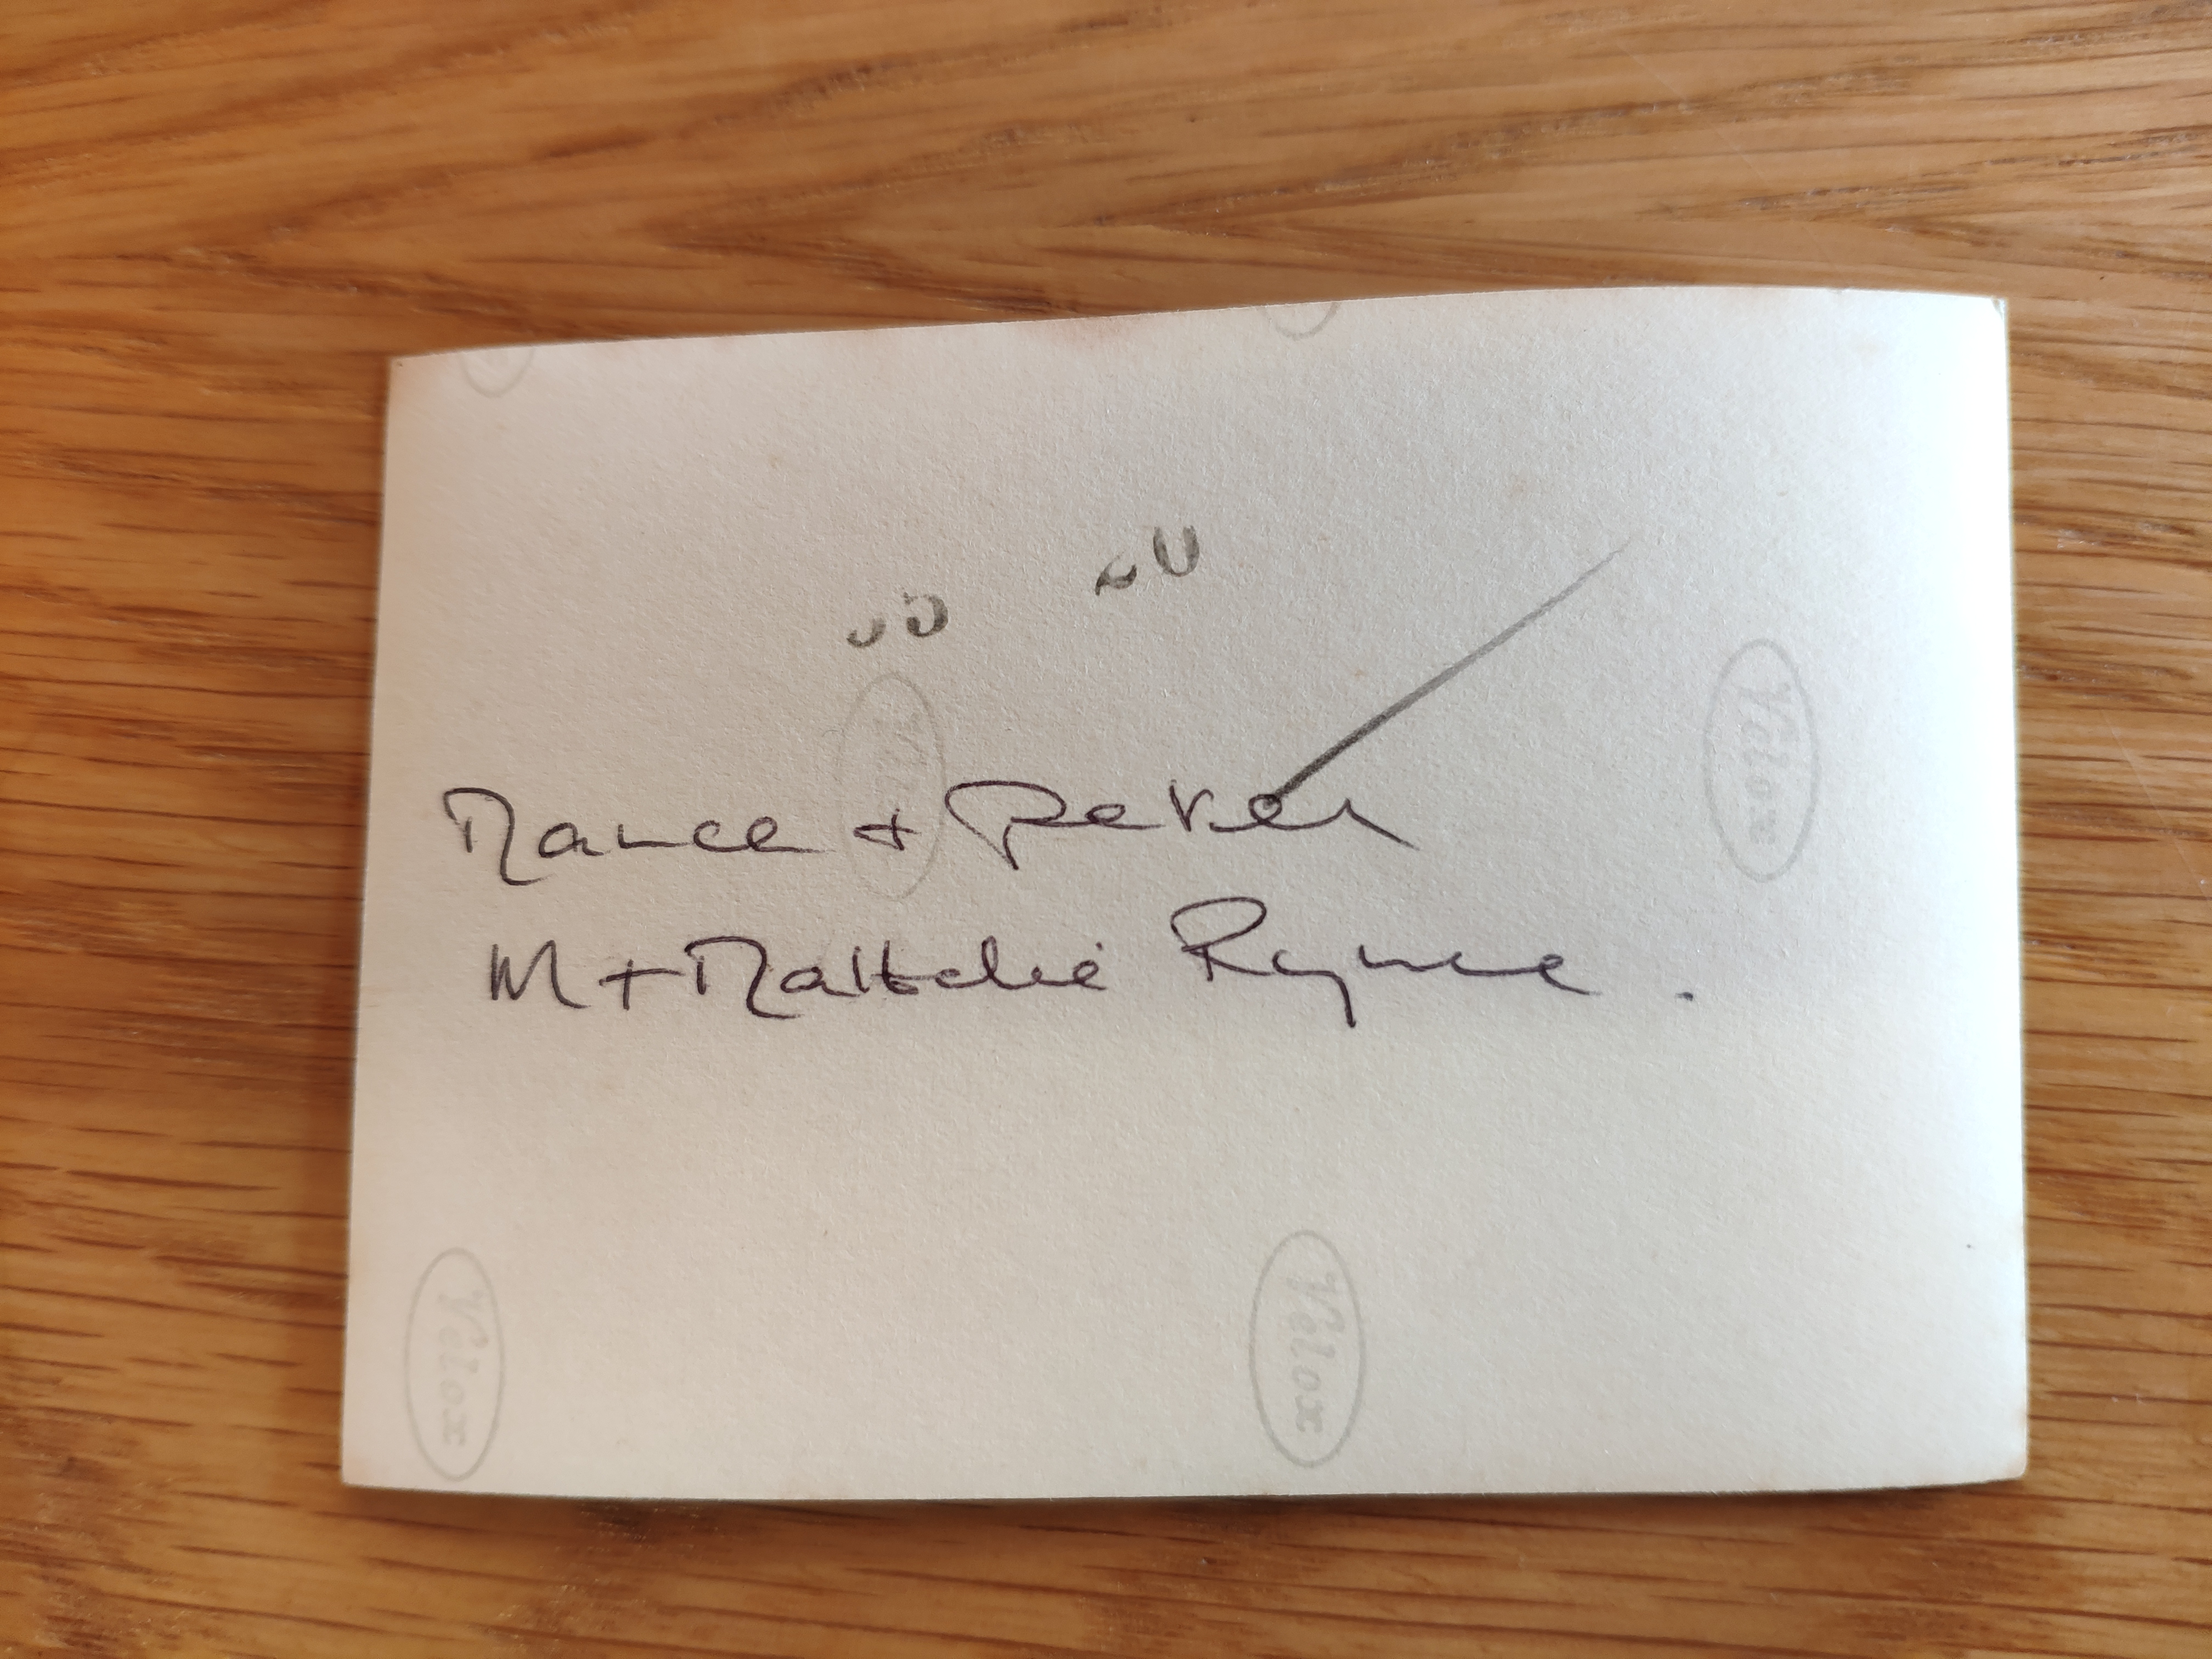 Nance + Peter
M + Nattelie Rynne.
Velox
Velox
Velox
Velox